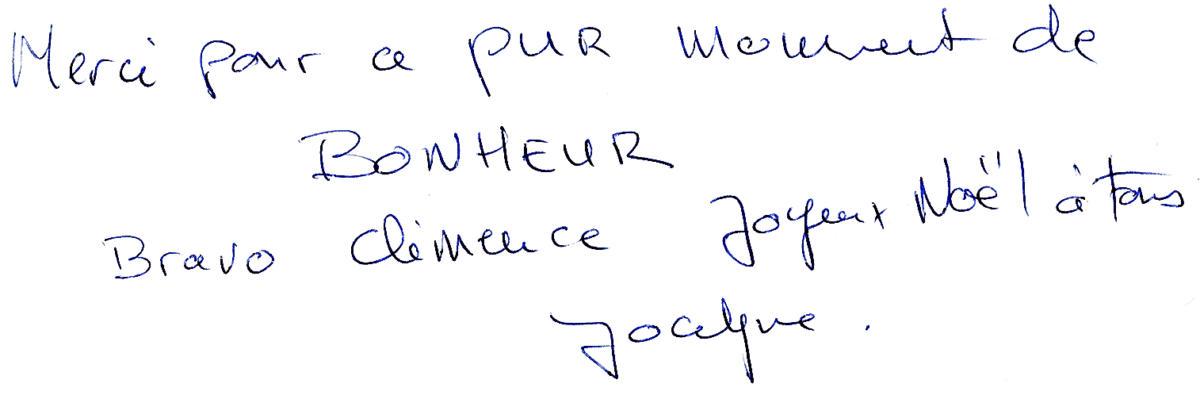 Merci pour ce PUR moment de
BONHEUR
Bravo Clémence Joyeux Noël à tous
Jocelyne.